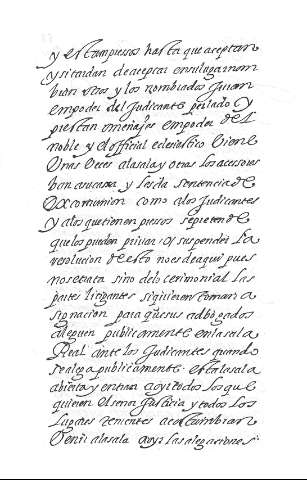 y estan presos hasta que aceptan
y si tardan de aceptar en su lugar nom
bran otros y los nombrados juran
en poder del Judicante prelado y
prestan omenajes en poder del
noble y el official eclesiastico biene
Unas veces a la sala y otras los acessores
ban a su casa y les da sentencia de
Excomunion como a los Judicantes
y a los que tienen presos se pretende
que los pueden privar o suspender La
resolucion de esto no es de aqui pues
no se trata sino del cerimonial Las
partes litigantes siguieron toman a
signacion para q̃ sus adbogados
aleguen publicamente en la sala
Real ante los Judicantes quando
se alega publicamente esta la sala
abierta y entran a oyr todos los que
quieren el señor Justicia y todos Los
Lugares tenientes acostumbran
Venir a la sala a oyr las alegaciones